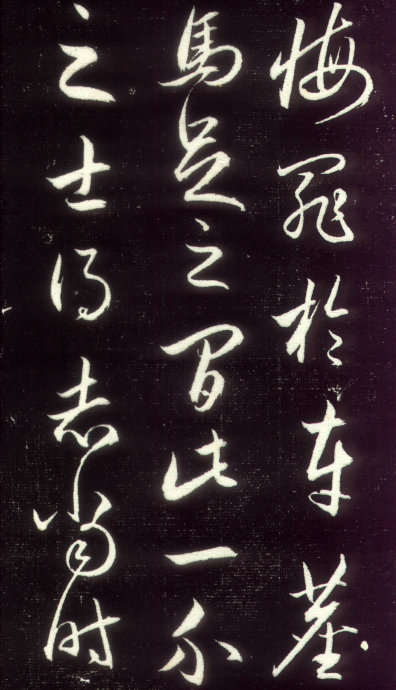 悔罪於車塵
馬足之間此一介
之士得志當時